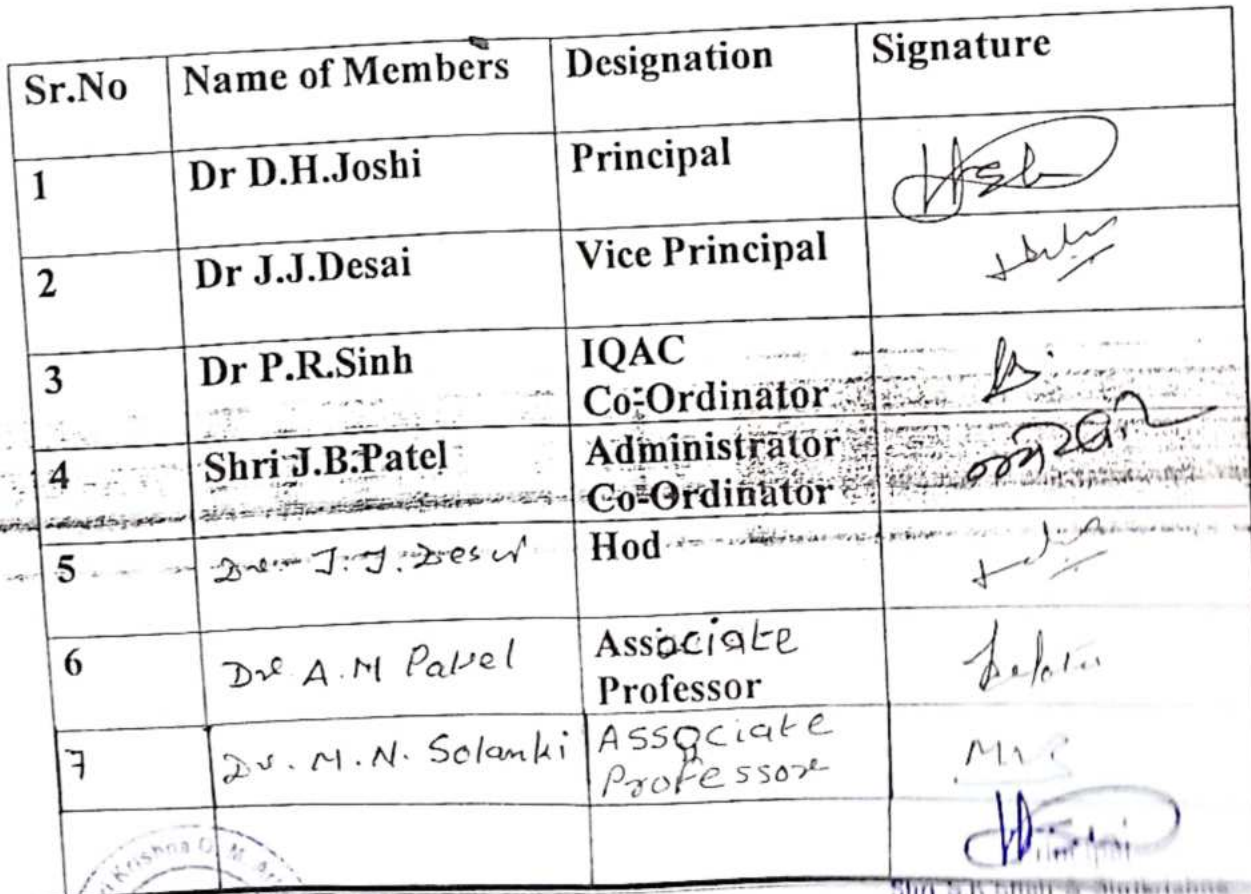 Sr.No Name of Members Designation Signature
1 Dr D.H.Joshi Principal
2 Dr J.J.Desai Vice Principal
3 Dr P.R.Sinh IQAC
Co-Ordinator
4 Shri J.B.Patel Administrator
Co-Ordinator
5 Dr. J.J. Desai Hod
6 Dr A.M Patel Associate
Professor
7 Dr. M.N. Solanki Associate
Professor
Krishna
Principal